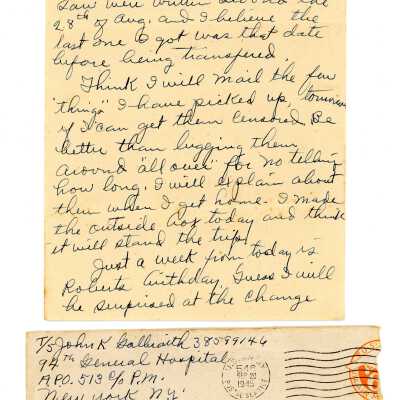 Saw were written around the
28th of Aug. and I believe the
last one I got was that date
before being transfered.
Think I will mail the few
"things" I have picked up, tomorrow
if I can get them censored. Be
better than lugging them
around "all over" for no telling
how long. I will explain about
them when I get home. I made
the outside box today and think
it will stand the trip.
Just a week from today is
Roberts birthday. Guess I will
be surprised at the change
T/5 John K Galbraith 38599146
94th General Hospital
A.P.O. 513 c/o P.M.
New York N.Y.